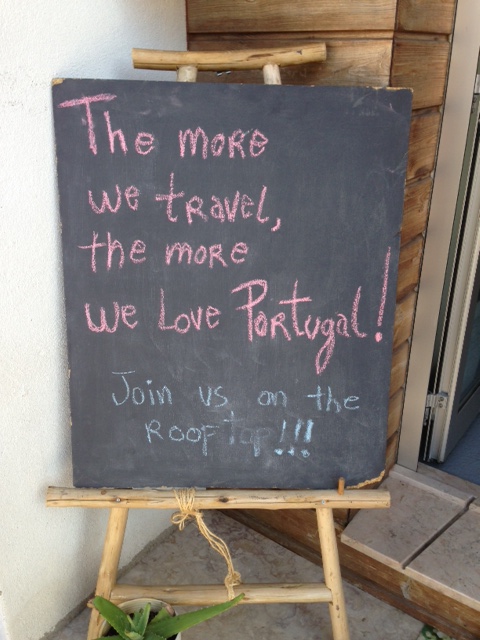 The more
we travel,
the more
we Love Portugal!
Join us on the
Rooftop!!!